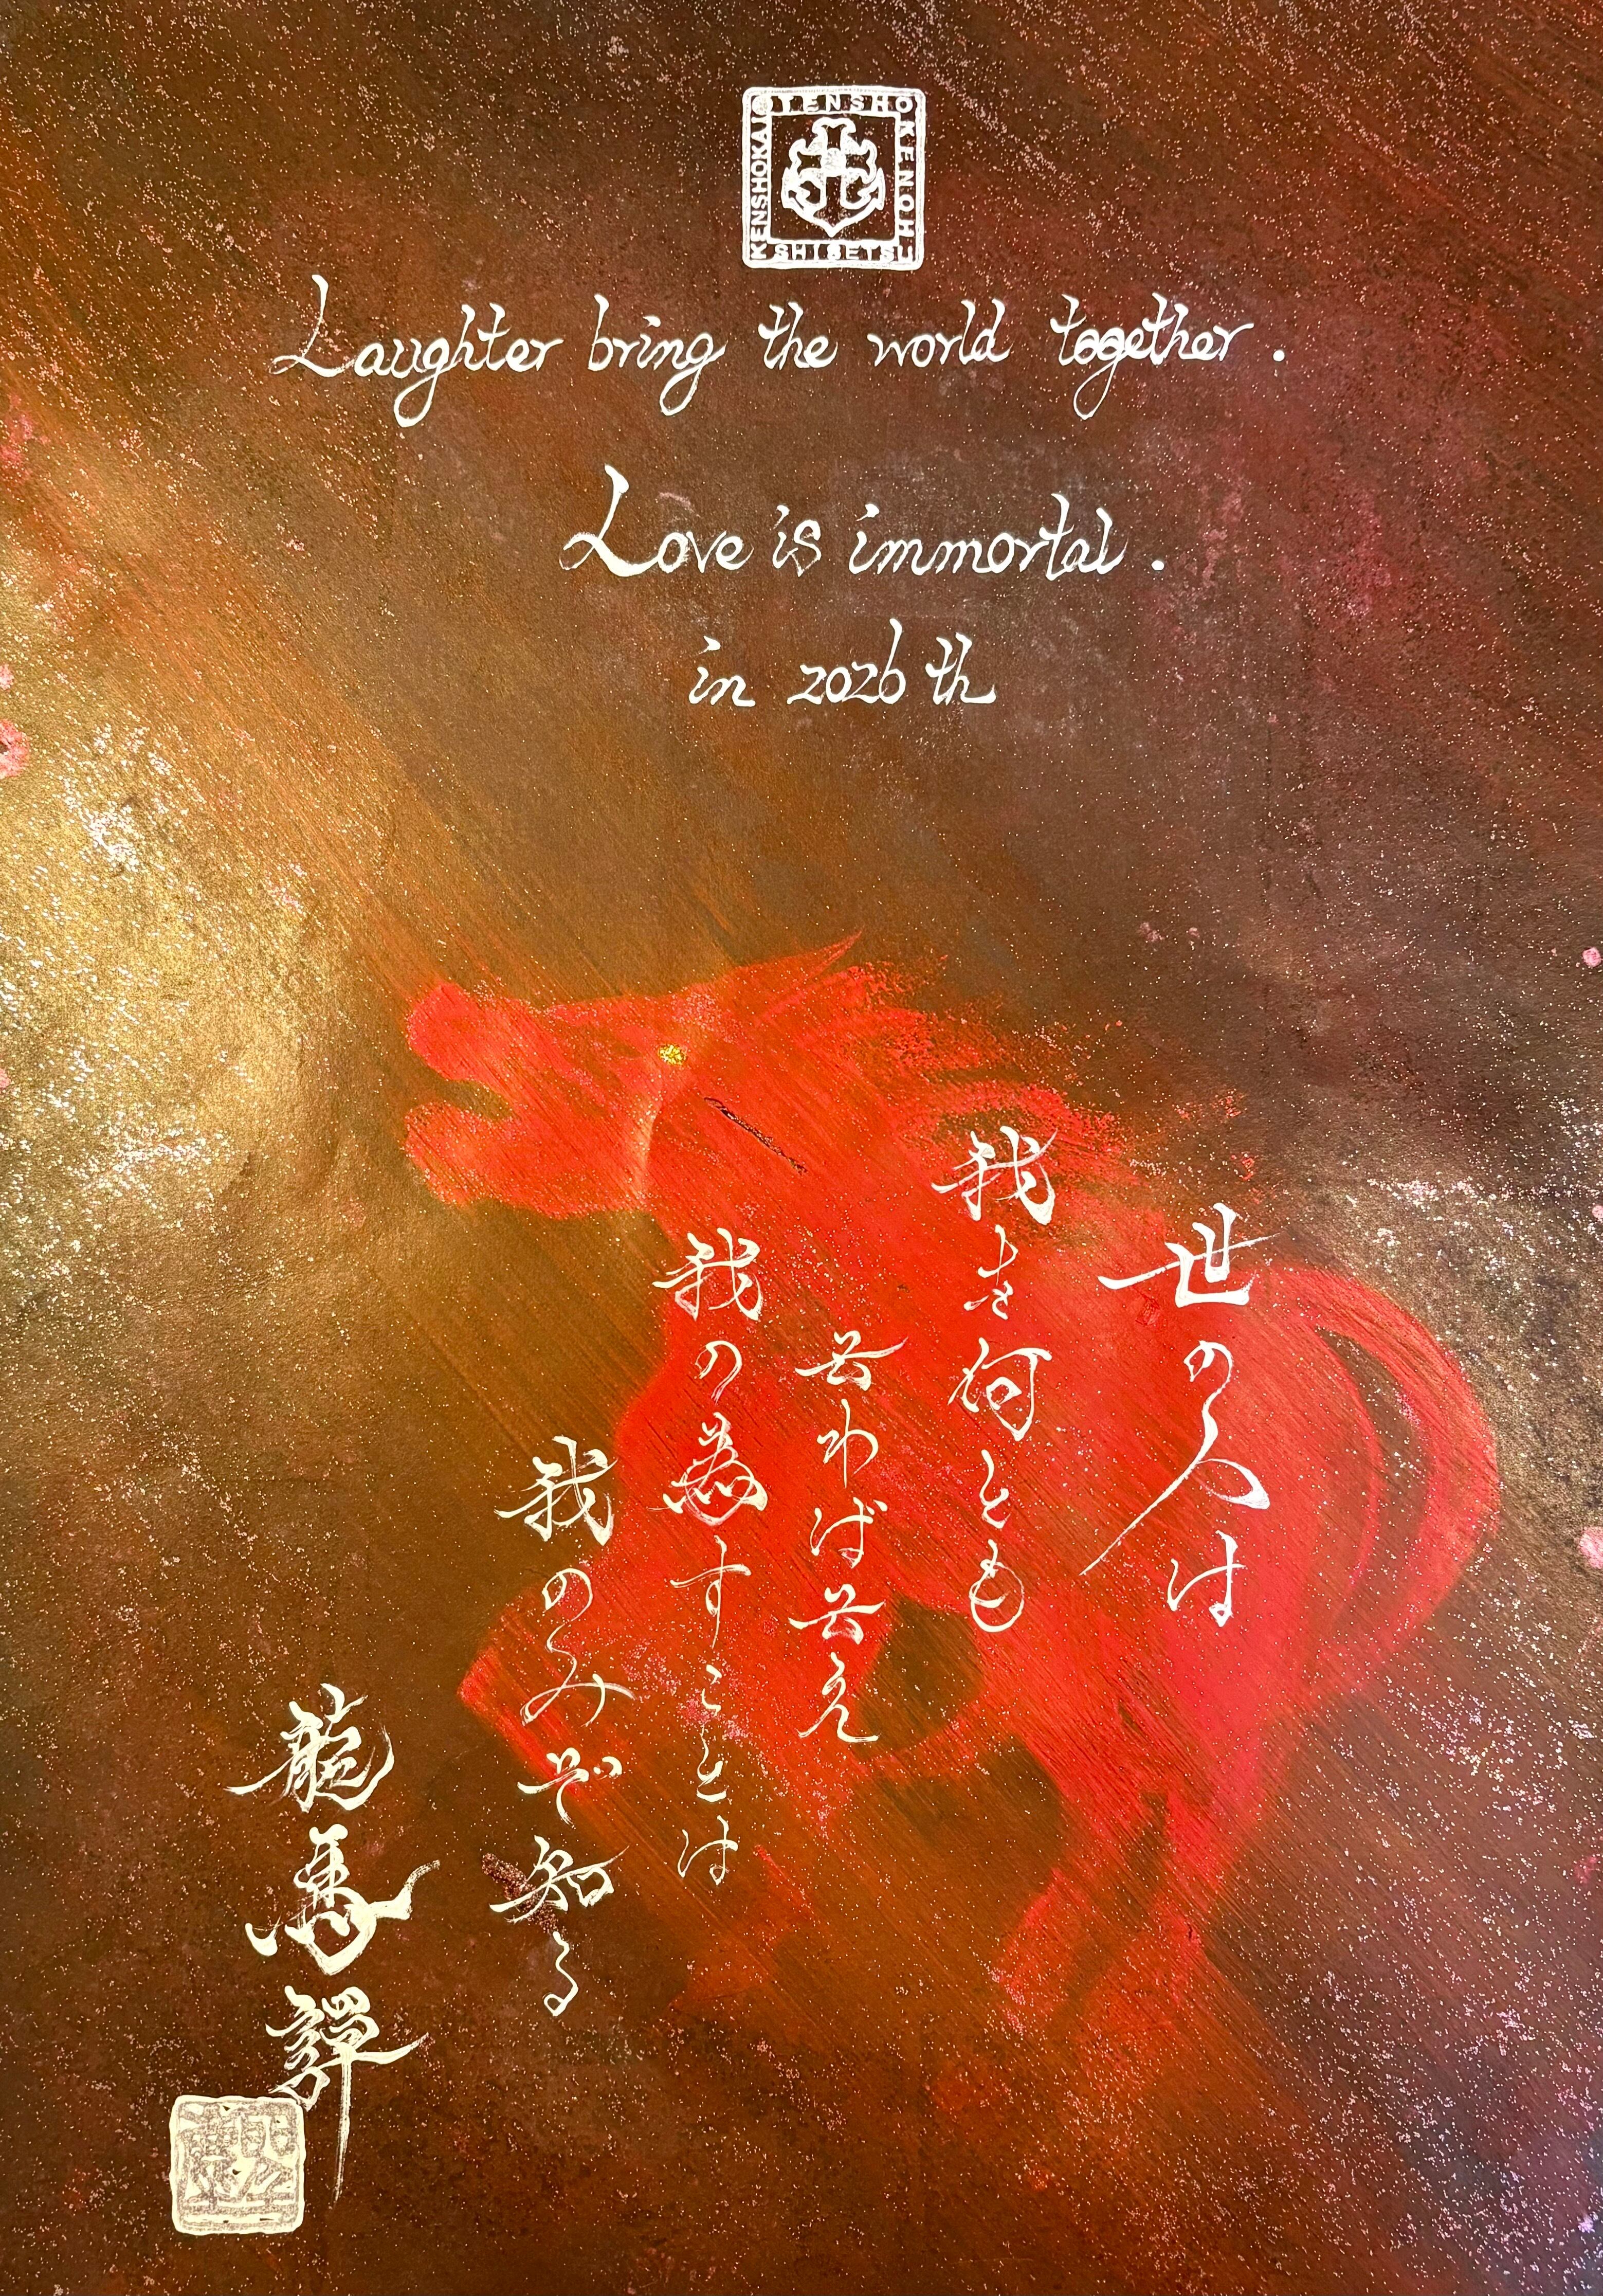 TENSHO KENOH
SHISETSU
KENSHOKAI
Laughter bring the world together.
Love is immortal.
in 2026 th
世の人は
我を何とも
云わば云え
我の為すことは
我のみぞ知る
龍馬